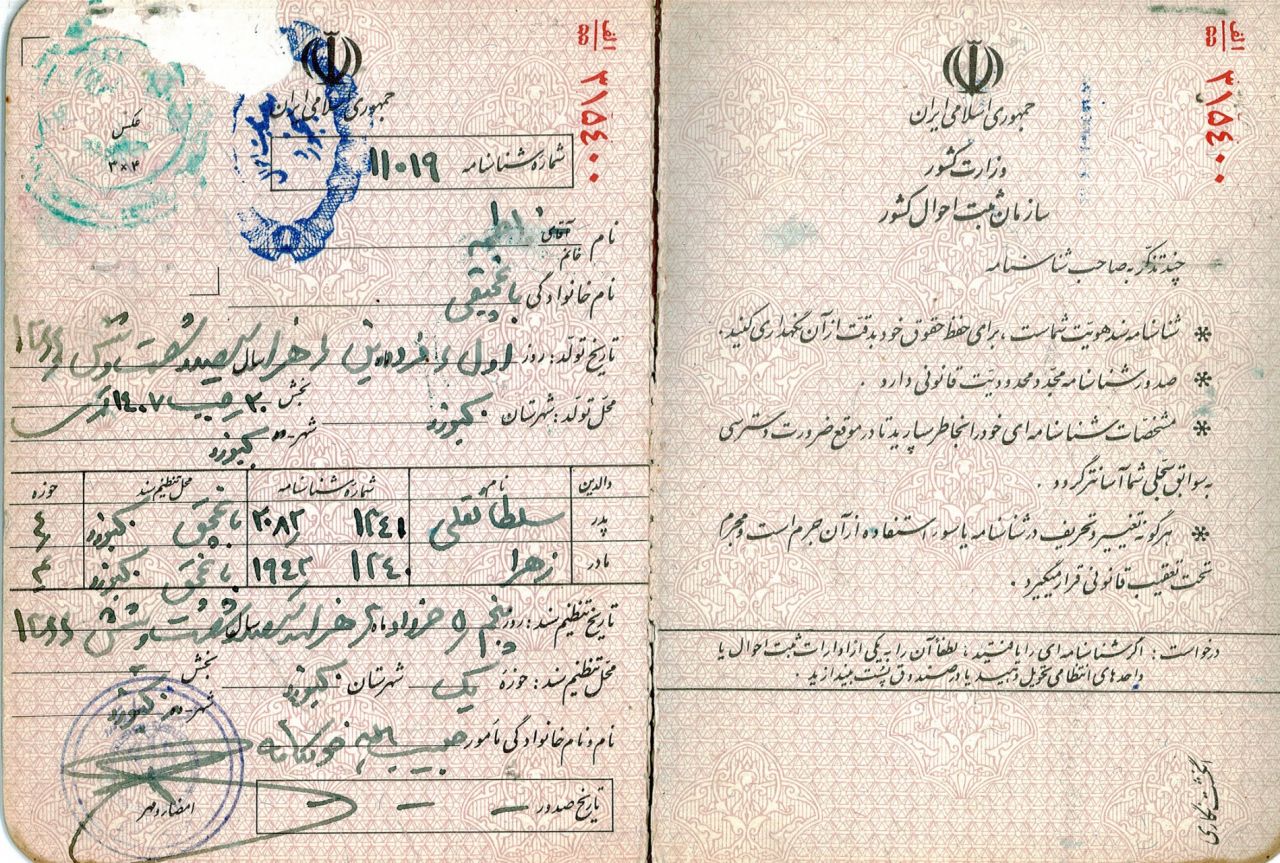 الف/۵۵ ۳۱۵۴۰۰
جمهوری اسلامی ایران
وزارت کشور
سازمان ثبت احوال کشور
چند تذکر به صاحب شناسنامه
* شناسنامه سند هویت شماست ، برای حفظ حقوق خود بدقت از آن نگهداری کنید .
* صدور شناسنامه مجدد محدودیت قانونی دارد .
* مشخصات شناسنامه ای خود را بخاطر بسپارید تا در موقع ضرورت دسترسی
به سوابق سجلی شما آسانتر گردد .
* هرگونه تغییر و تحریف در شناسنامه یا سوء استفاده از آن جرم است و مجرم
تحت تعقیب قانونی قرار میگیرد .
درخواست : اگر شناسنامه ای را یافتید ؛ لطفاً آن را به یکی از ادارات ثبت احوال یا
واحدهای انتظامی تحویل دهید یا در صندوق پست بیندازید .
انگشت نگاری
الف/۵۵ ۳۱۵۴۰۰
جمهوری اسلامی ایران
عکس
۳×۴
شماره شناسنامه ۱۱۰۱۹
نام آقای خانم
نام خانوادگی باغچقی
تاریخ تولد : روز اول ماه فروردین سال هزار سیصد شصت و شش ۱۳۶۶
۲۰ رجب ۱۴۰۷ قمری
محل تولد : شهرستان بجنورد بخش
شهر - ده بجنورد
والدین نام شماره شناسنامه محل تنظیم سند حوزه
پدر سلطانقلی ۱۳۴۱ باغچق بجنورد ۴
مادر زهرا ۱۳۴۰ باغچق بجنورد
تاریخ تنظیم سند : روز پنجم ماه خرداد سال هزار سیصد شصت و شش ۱۳۶۶
محل تنظیم سند : حوزه یک شهرستان بجنورد بخش
شهر - ده بجنورد
نام و نام خانوادگی مأمور
امضاء و مهر
تاریخ صدور